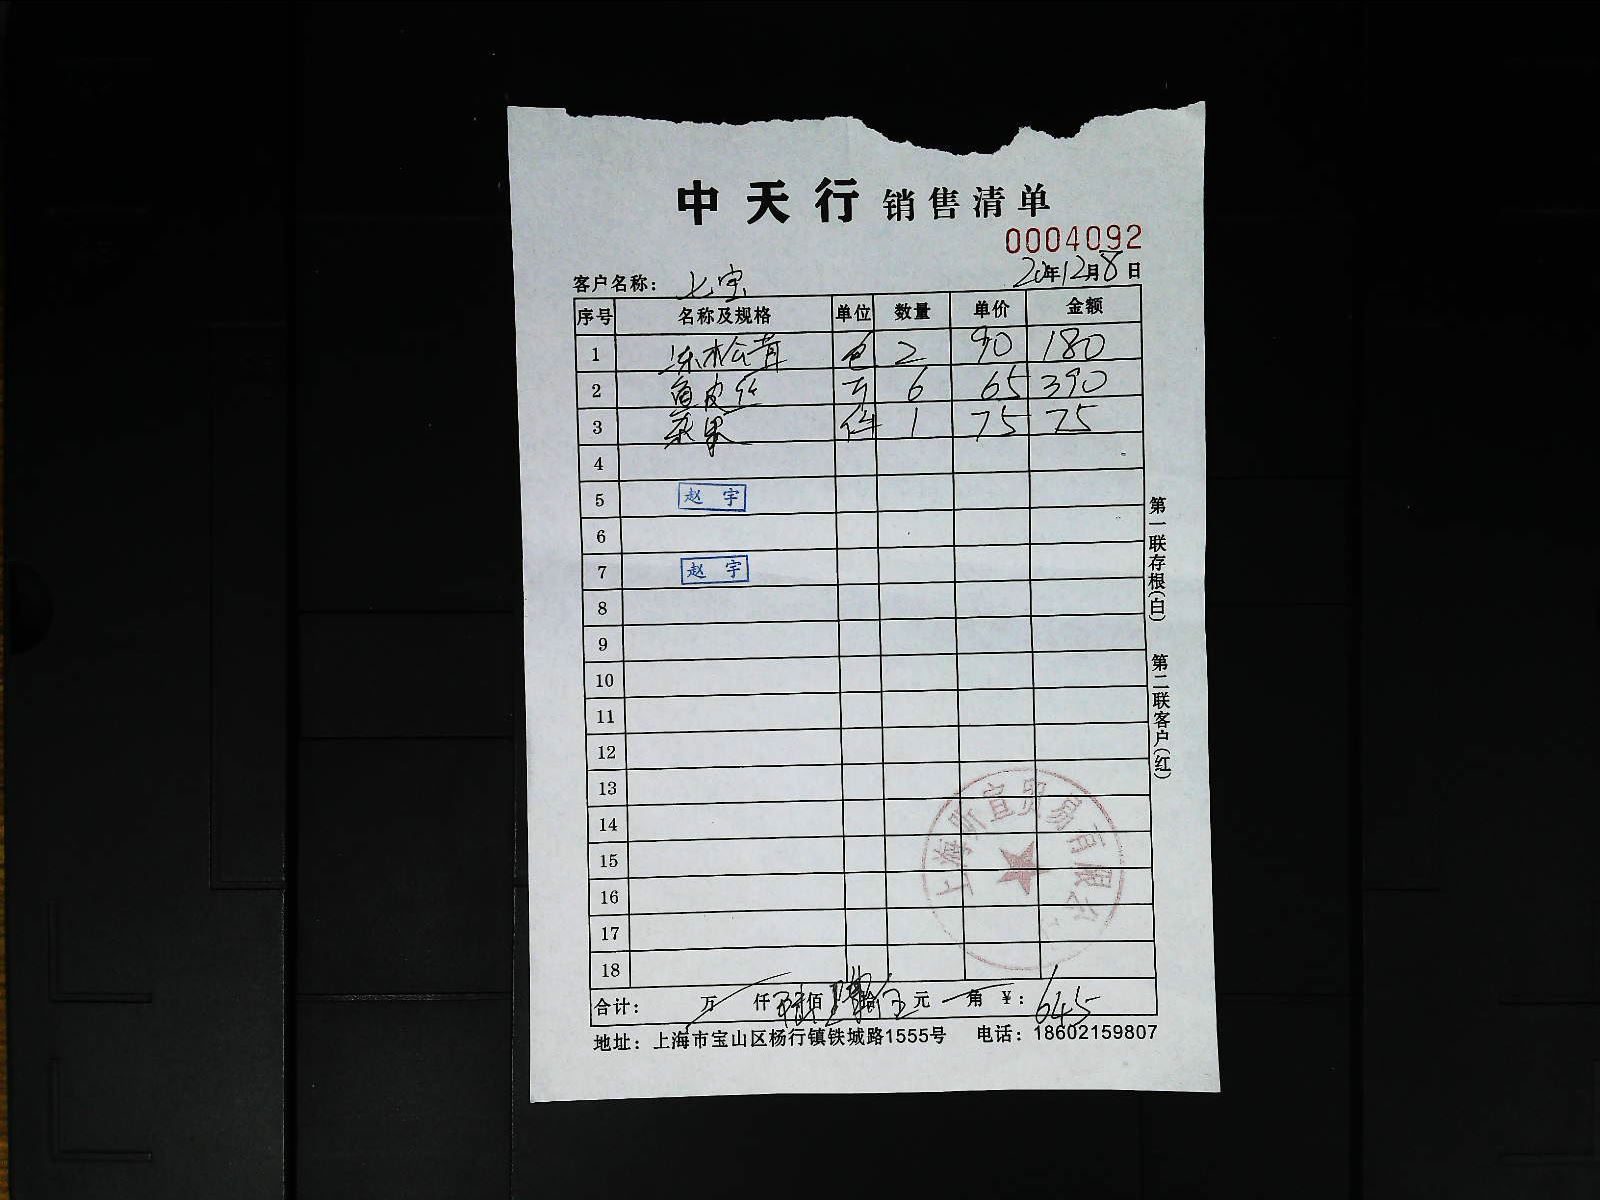 中天行 销售清单
0004092
客户名称: 七宝 20年12月8日
序号 名称及规格 单位 数量 单价 金额
1 冻松茸 包 2 90 180
2 鱼皮丝 6 65 390
3 苹果 件 1 75 75
4
5 赵宇
6
7 赵宇
8
9
10
11
12
13
14
15
16
17
18
上海昕宜贸易有限公
合计: 万 仟 陆佰 肆拾伍元 角 ¥: 645
地址: 上海市宝山区杨行镇铁城路1555号 电话: 18602159807
第一联存根(白)
第二联客户(红)